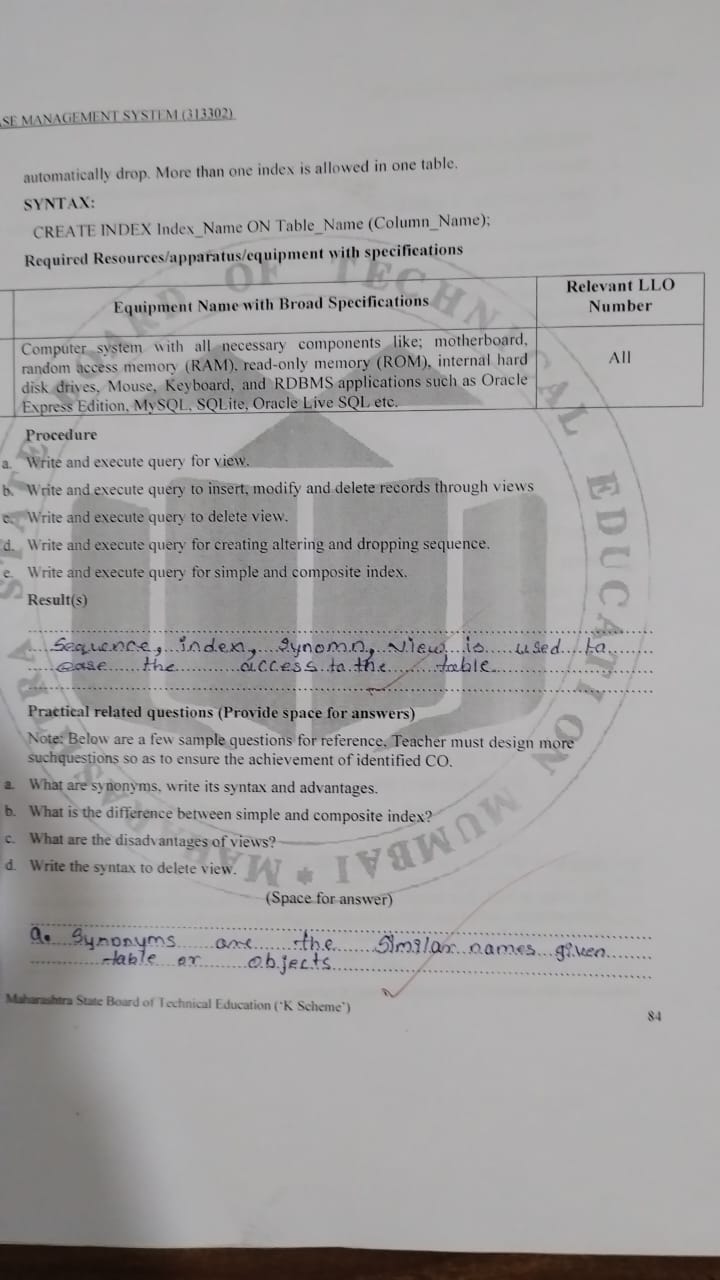 SE MANAGEMENT SYSTEM (313302)
automatically drop. More than one index is allowed in one table.
SYNTAX:
CREATE INDEX Index_Name ON Table_Name (Column_Name);
Required Resources/apparatus/equipment with specifications
Equipment Name with Broad Specifications
Relevant LLO
Number
Computer system with all necessary components like; motherboard,
random access memory (RAM), read-only memory (ROM), internal hard
disk drives, Mouse, Keyboard, and RDBMS applications such as Oracle
Express Edition, MySQL, SQLite, Oracle Live SQL etc.
All
Procedure
a. Write and execute query for view.
b. Write and execute query to insert, modify and delete records through views
c. Write and execute query to delete view.
d. Write and execute query for creating altering and dropping sequence.
e. Write and execute query for simple and composite index.
Result(s)
Sequence, index, synomn, view is used to
ease the access to the table
Practical related questions (Provide space for answers)
Note: Below are a few sample questions for reference. Teacher must design more
suchquestions so as to ensure the achievement of identified CO.
a. What are synonyms, write its syntax and advantages.
b. What is the difference between simple and composite index?
c. What are the disadvantages of views?
d. Write the syntax to delete view.
(Space for answer)
a. Synonyms are the similar names given
table or objects
Maharashtra State Board of Technical Education ('K Scheme')
84
BOARD OF TECHNICAL EDUCATION MUMBAI * MAHARASHTRA STATE